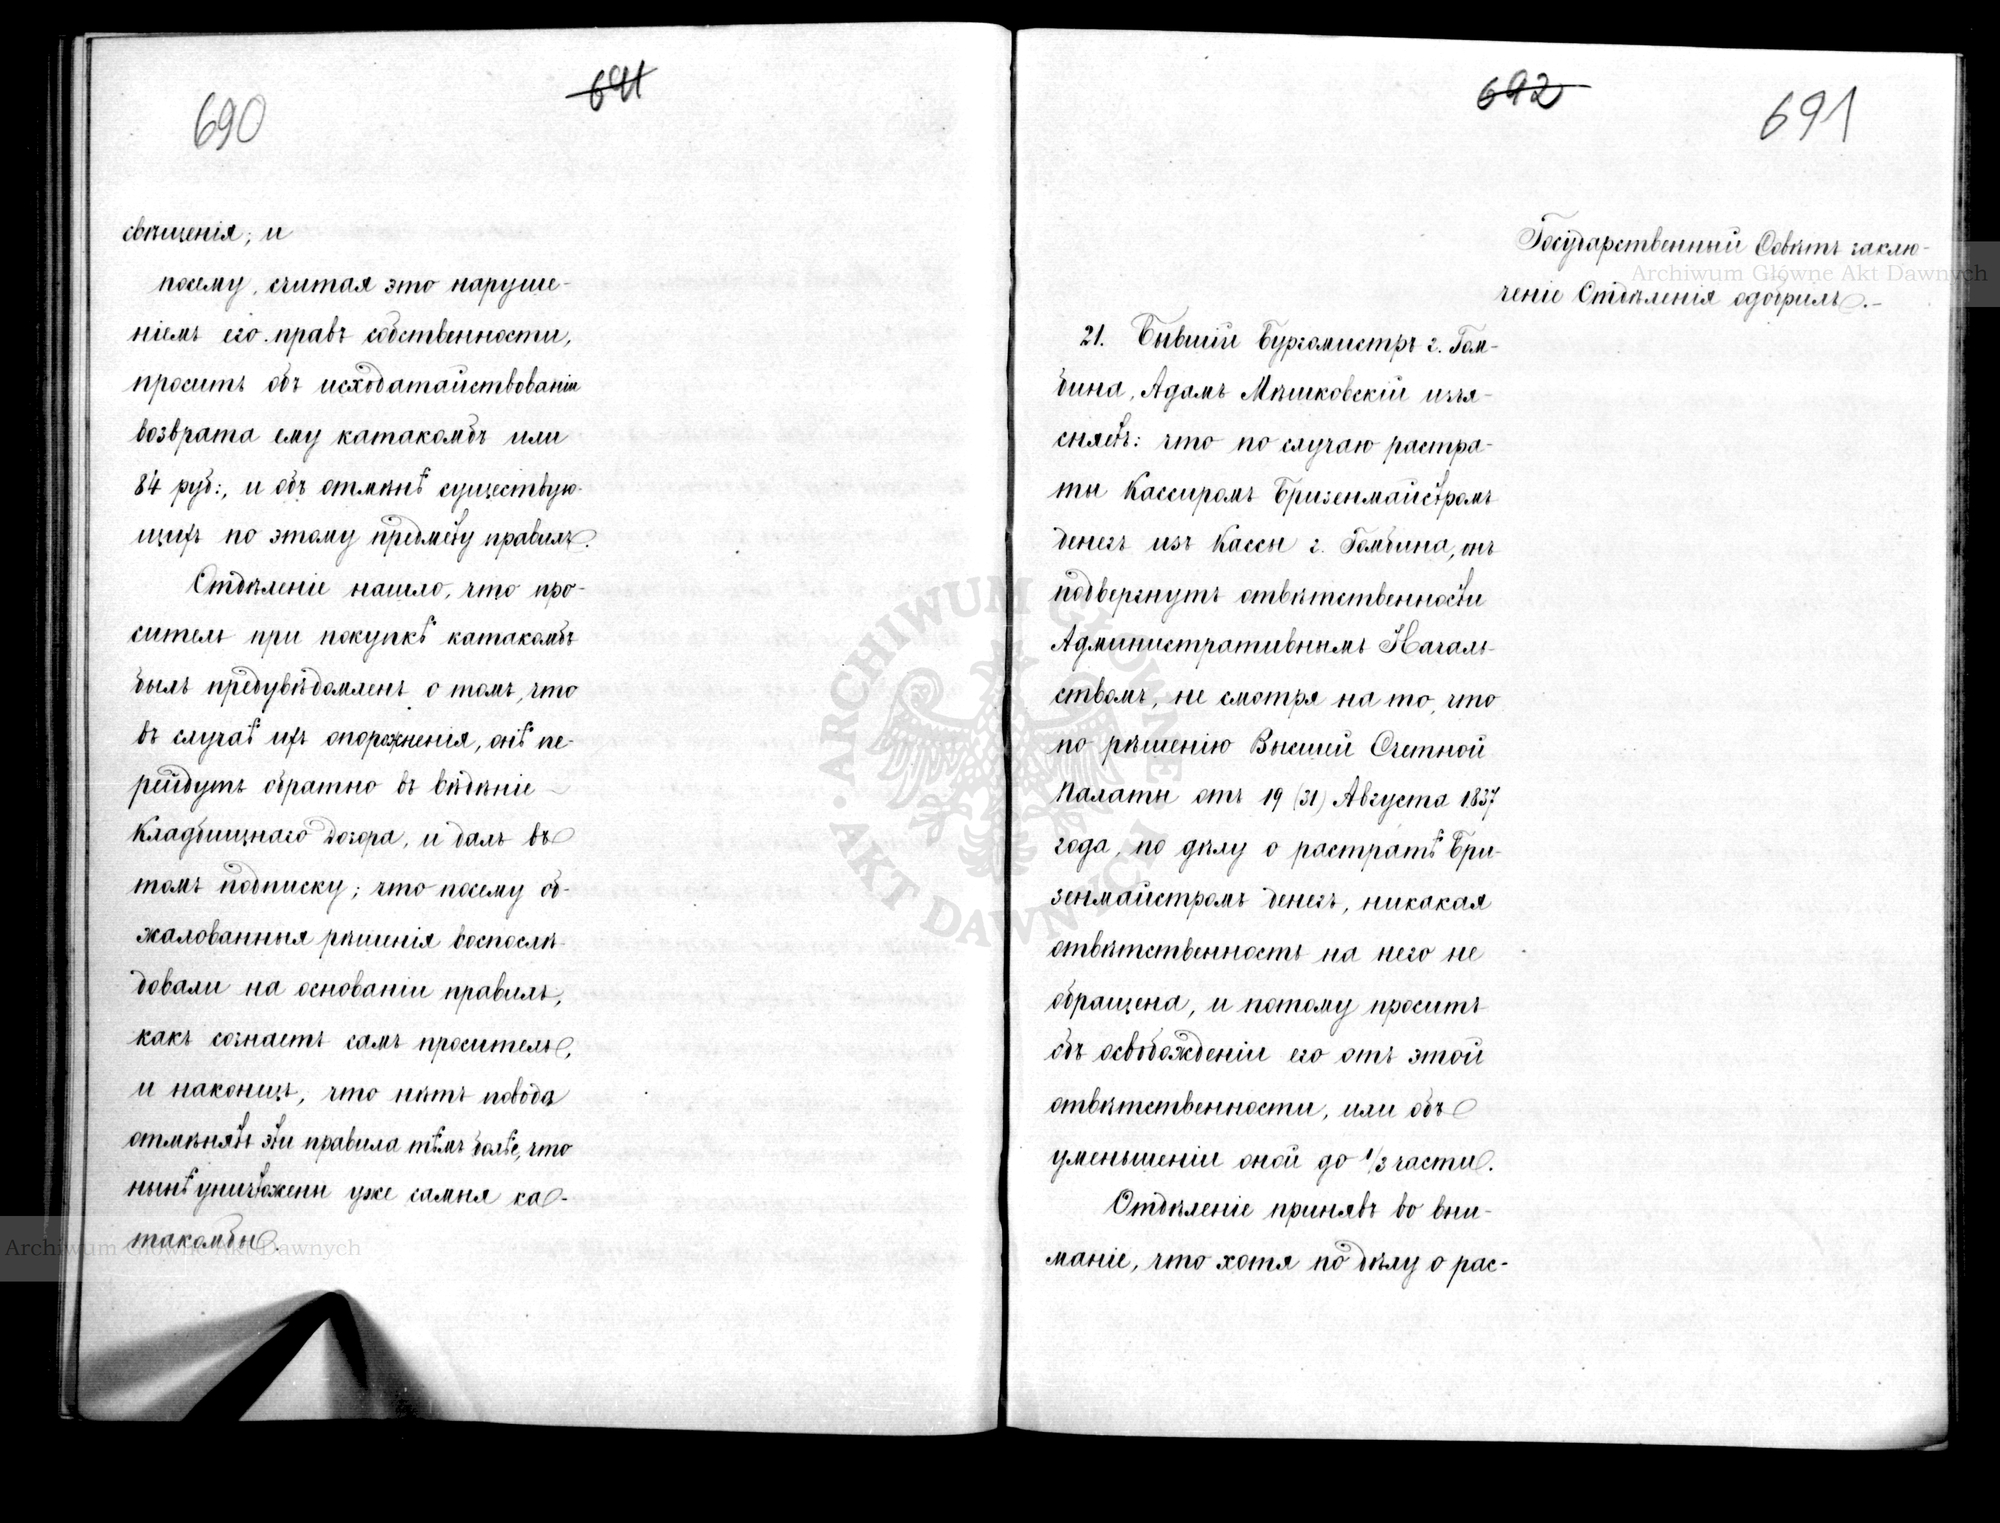 690
691
священія; и
посему, считая это наруше-
ніемъ его правъ собственности,
проситъ объ исходатайствованіи
возврата ему катакомбъ или
84 руб:, и объ отмѣнѣ существую-
щихъ по этому предмету правилъ.
Отдѣленіе нашло, что про-
ситель при покупкѣ катакомбъ
былъ предувѣдомленъ о томъ, что
въ случаѣ ихъ опорожненія, онѣ пе-
рейдутъ обратно въ вѣдѣніе
Кладбищнаго Дозора, и далъ въ
томъ подписку; что посему об-
жалованныя рѣшенія воспослѣ-
довали на основаніи правилъ,
какъ сознаетъ самъ проситель,
и наконецъ, что нѣтъ повода
отмѣнять эти правила тѣмъ болѣе, что
нынѣ уничтожены уже самыя ка-
такомбы.
692
691
Государственный Совѣтъ заклю-
ченіе Отдѣленія одобрилъ.-
21. Бывшій Бургомистръ г. Гом-
бина, Адамъ Мѣшковскій изъя-
сняетъ: что по случаю растра-
ты Кассиромъ Бризенмайстромъ
денегъ изъ Кассы г. Гомбина, онъ
подвергнутъ отвѣтственности
Административнымъ Началь-
ствомъ, не смотря на то, что
по рѣшенію Высшей Счетной
Палаты отъ 19 (31) Августа 1837
года, по дѣлу о растратѣ Бри-
зенмайстромъ денегъ, никакая
отвѣтственность на него не
обращена, и потому проситъ
объ освобожденіи его отъ этой
отвѣтственности, или объ
уменьшеніи оной до 1/3 части.
Отдѣленіе принявъ во вни-
маніе, что хотя по дѣлу о рас-
Archiwum Główne Akt Dawnych
Archiwum Główne Akt Dawnych
ARCHIWUM GŁÓWNE · AKT DAWNYCH ·